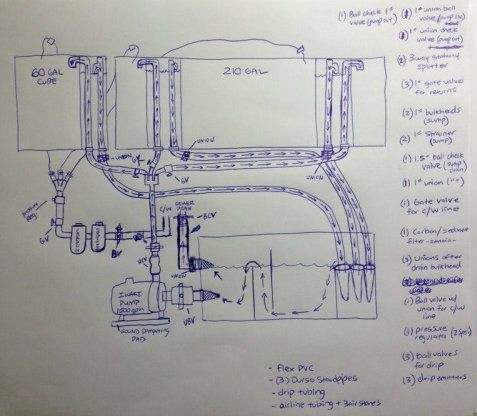 60 GAL
CUBE
210 GAL
UNION
UNION
UNION
GV
GV
C/W
BV
SEWER
DRAIN
BCV
UNION
UBV
IWAKI
PUMP
SOUND DAMPENING
PAD
(1) Ball check 1"
valve (pump out)
1" union ball
valve (pump IN)
1" union check
valve (pump out)
(2) 3way sanitary
splitter
(3) 1" gate valves
for returns
(2) 1" bulkheads
(sump)
(2) 1" strainer
(sump)
(1) 1.5" ball check
valve (sump
(1) 1" union
(1) Gate valve
for c/w line
(1) Carbon/sediment
filter
(3) Unions after
drain bulkhead
(1) Ball valve w/
union for c/w
line
(1) pressure
regulator
(3) ball valves
for drip
(3) drip emitters
- flex PVC
- (3) Durso Standpipes
- drip tubing
- airline tubing + 3 air stones